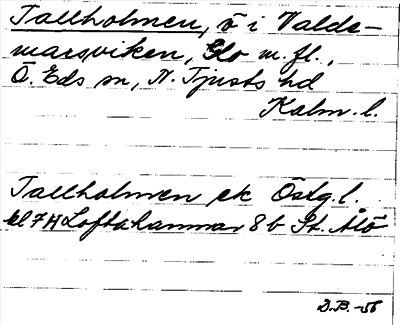 Tallholmen, ö i Valde-
marsviken, Glo m.fl.,
Ö. Eds sn, N. Tjusts hd
Kalm. l.
Tallholmen ek Östg. l.
bl 7H Loftahammar 8b St. Ålö
D.B. -56